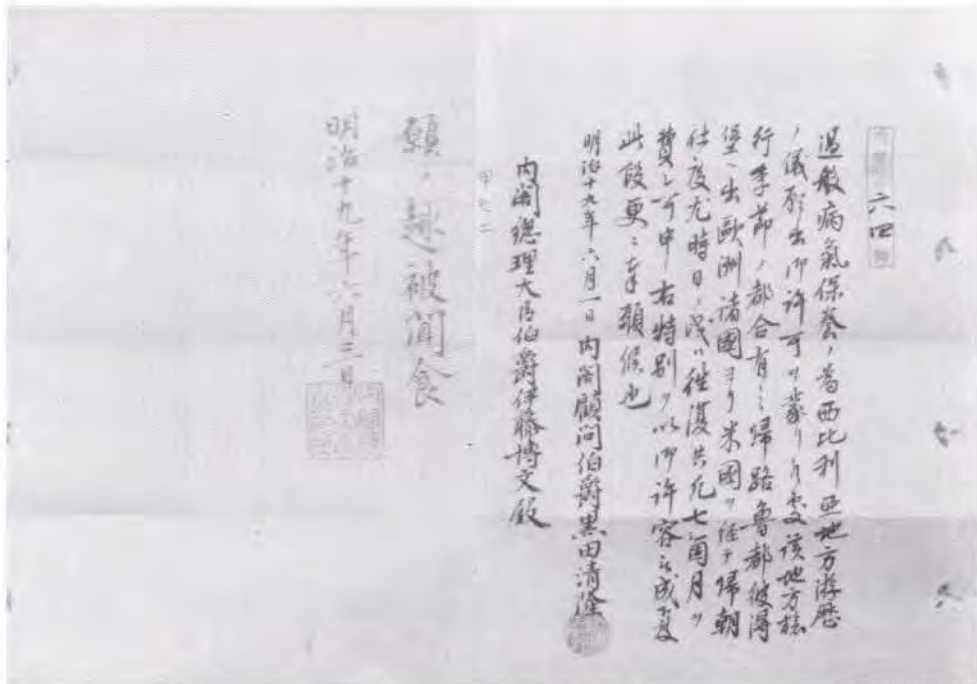 六四
過般病氣保養ノ爲西比利亜地方游歴
ノ儀願出御許可ヲ蒙リ候處該地方旅
行季節ノ都合有之帰路魯都彼得
堡ヘ出歐洲諸國ヨリ米國ヲ経テ帰朝
仕度尤時日ノ儀ハ往復共凡七箇月ヲ
費シ可申右特別ヲ以御許容被成下度
此段更ニ奉願候也
明治十九年六月一日内閣顧問伯爵黒田清隆
内閣總理大臣伯爵伊藤博文殿
甲七二
願ノ趣被聞食
明治十九年六月三日